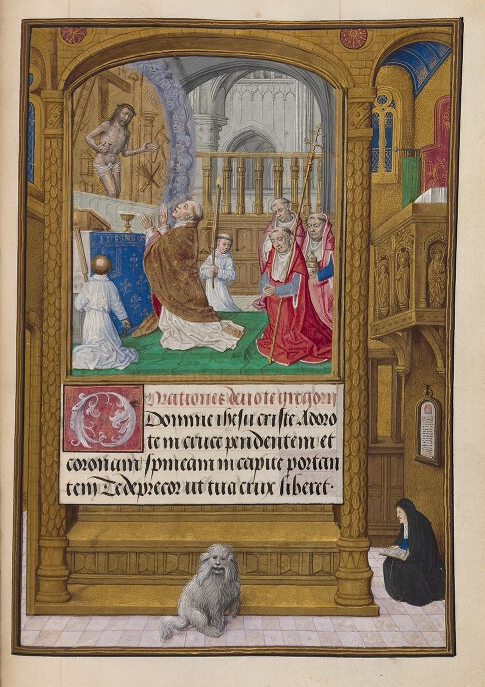 Orationes deuote gregorij
O Domine ihesu criste Adoro
te in cruce pendentem et
coronam spineam in capite portan
tem Te deprecor ut tua crux liberet·